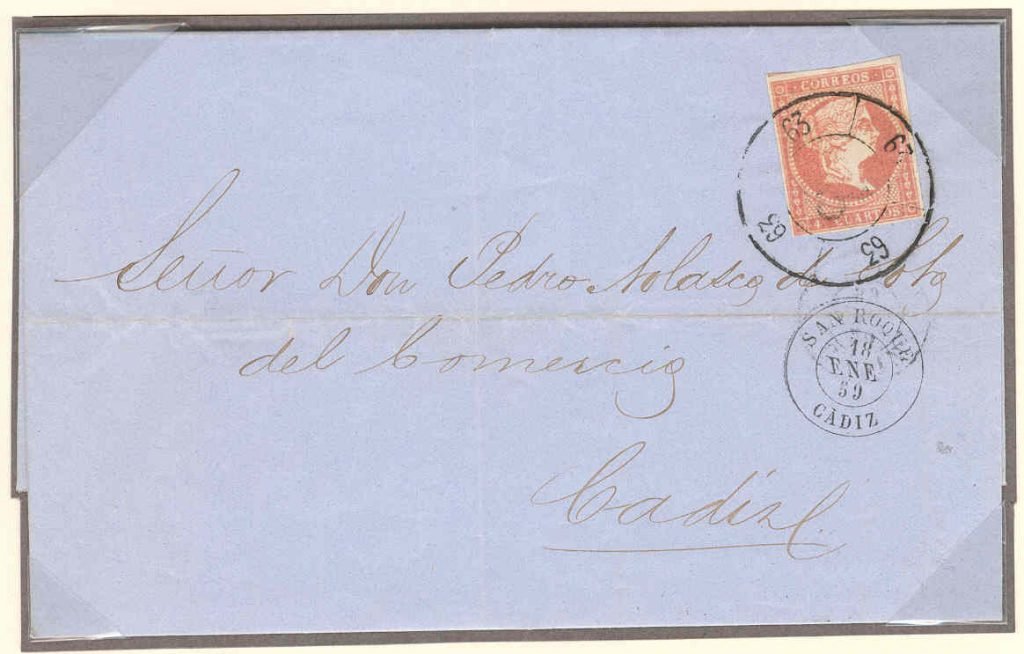 CORREOS
4 CUARTOS
63 63 63 63
Señor Don Pedro Nolasco de Soto
del Comercio
SAN ROQUE
18
ENE
59
CÁDIZ
Cadiz